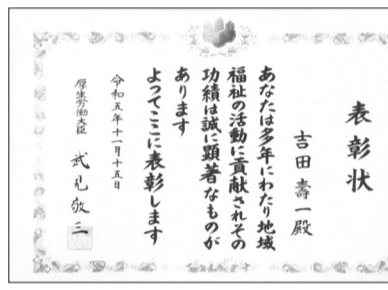 表彰状
吉田壽一殿
あなたは多年にわたり地域
福祉の活動に貢献されその
功績は誠に顕著なものが
あります
よってここに表彰します
令和五年十一月十五日
厚生労働大臣 武見敬三